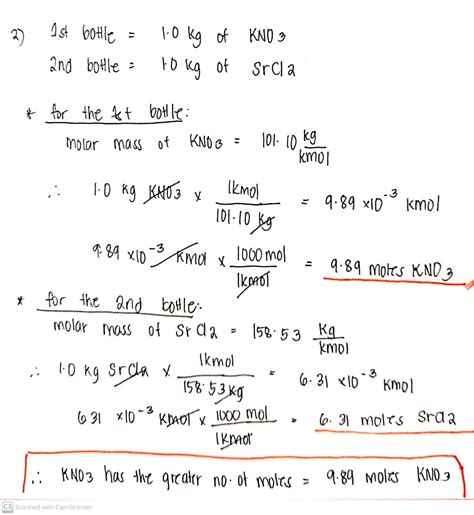 2) 1st bottle = 1.0 kg of KNO3
2nd bottle = 1.0 kg of SrCl2
* for the 1st bottle:
molar mass of KNO3 = 101.10 kg/kmol
∴ 1.0 kg KNO3 x 1kmol/101.10 kg = 9.89 x10^-3 kmol
9.89 x10^-3 kmol x 1000 mol/1kmol = 9.89 moles KNO3
* for the 2nd bottle:
molar mass of SrCl2 = 158.53 kg/kmol
∴ 1.0 kg SrCl2 x 1kmol/158.53 kg = 6.31 x10^-3 kmol
6.31 x10^-3 kmol x 1000 mol/1kmol = 6.31 moles SrCl2
∴ KNO3 has the greater no. of moles = 9.89 moles KNO3
CS Scanned with CamScanner